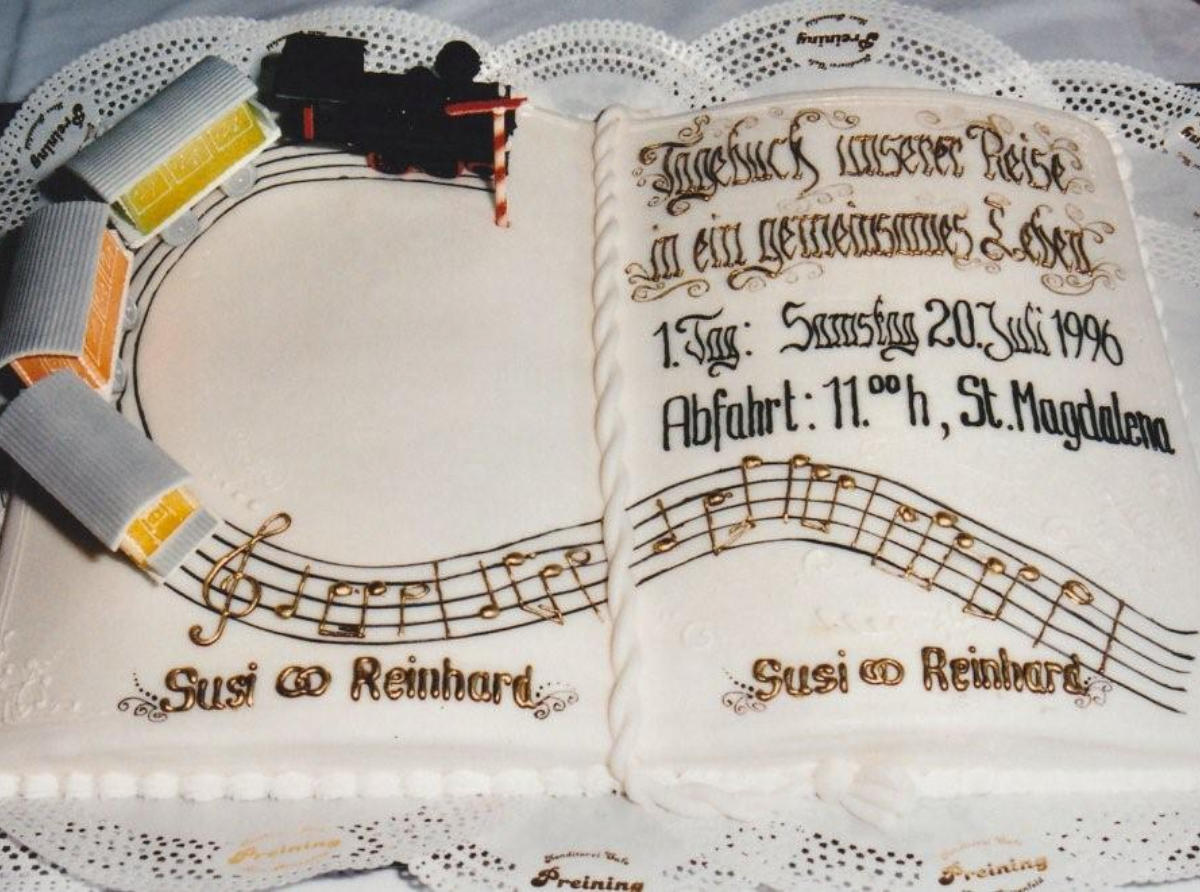 Preining
Preining
Tagebuch unserer Reise
in ein gemeinsames Leben
1. Tag: Samstag 20. Juli 1996
Abfahrt: 11.⁰⁰ h, St. Magdalena
Susi ⚭ Reinhard
Susi ⚭ Reinhard
Preining
Preining
Preining